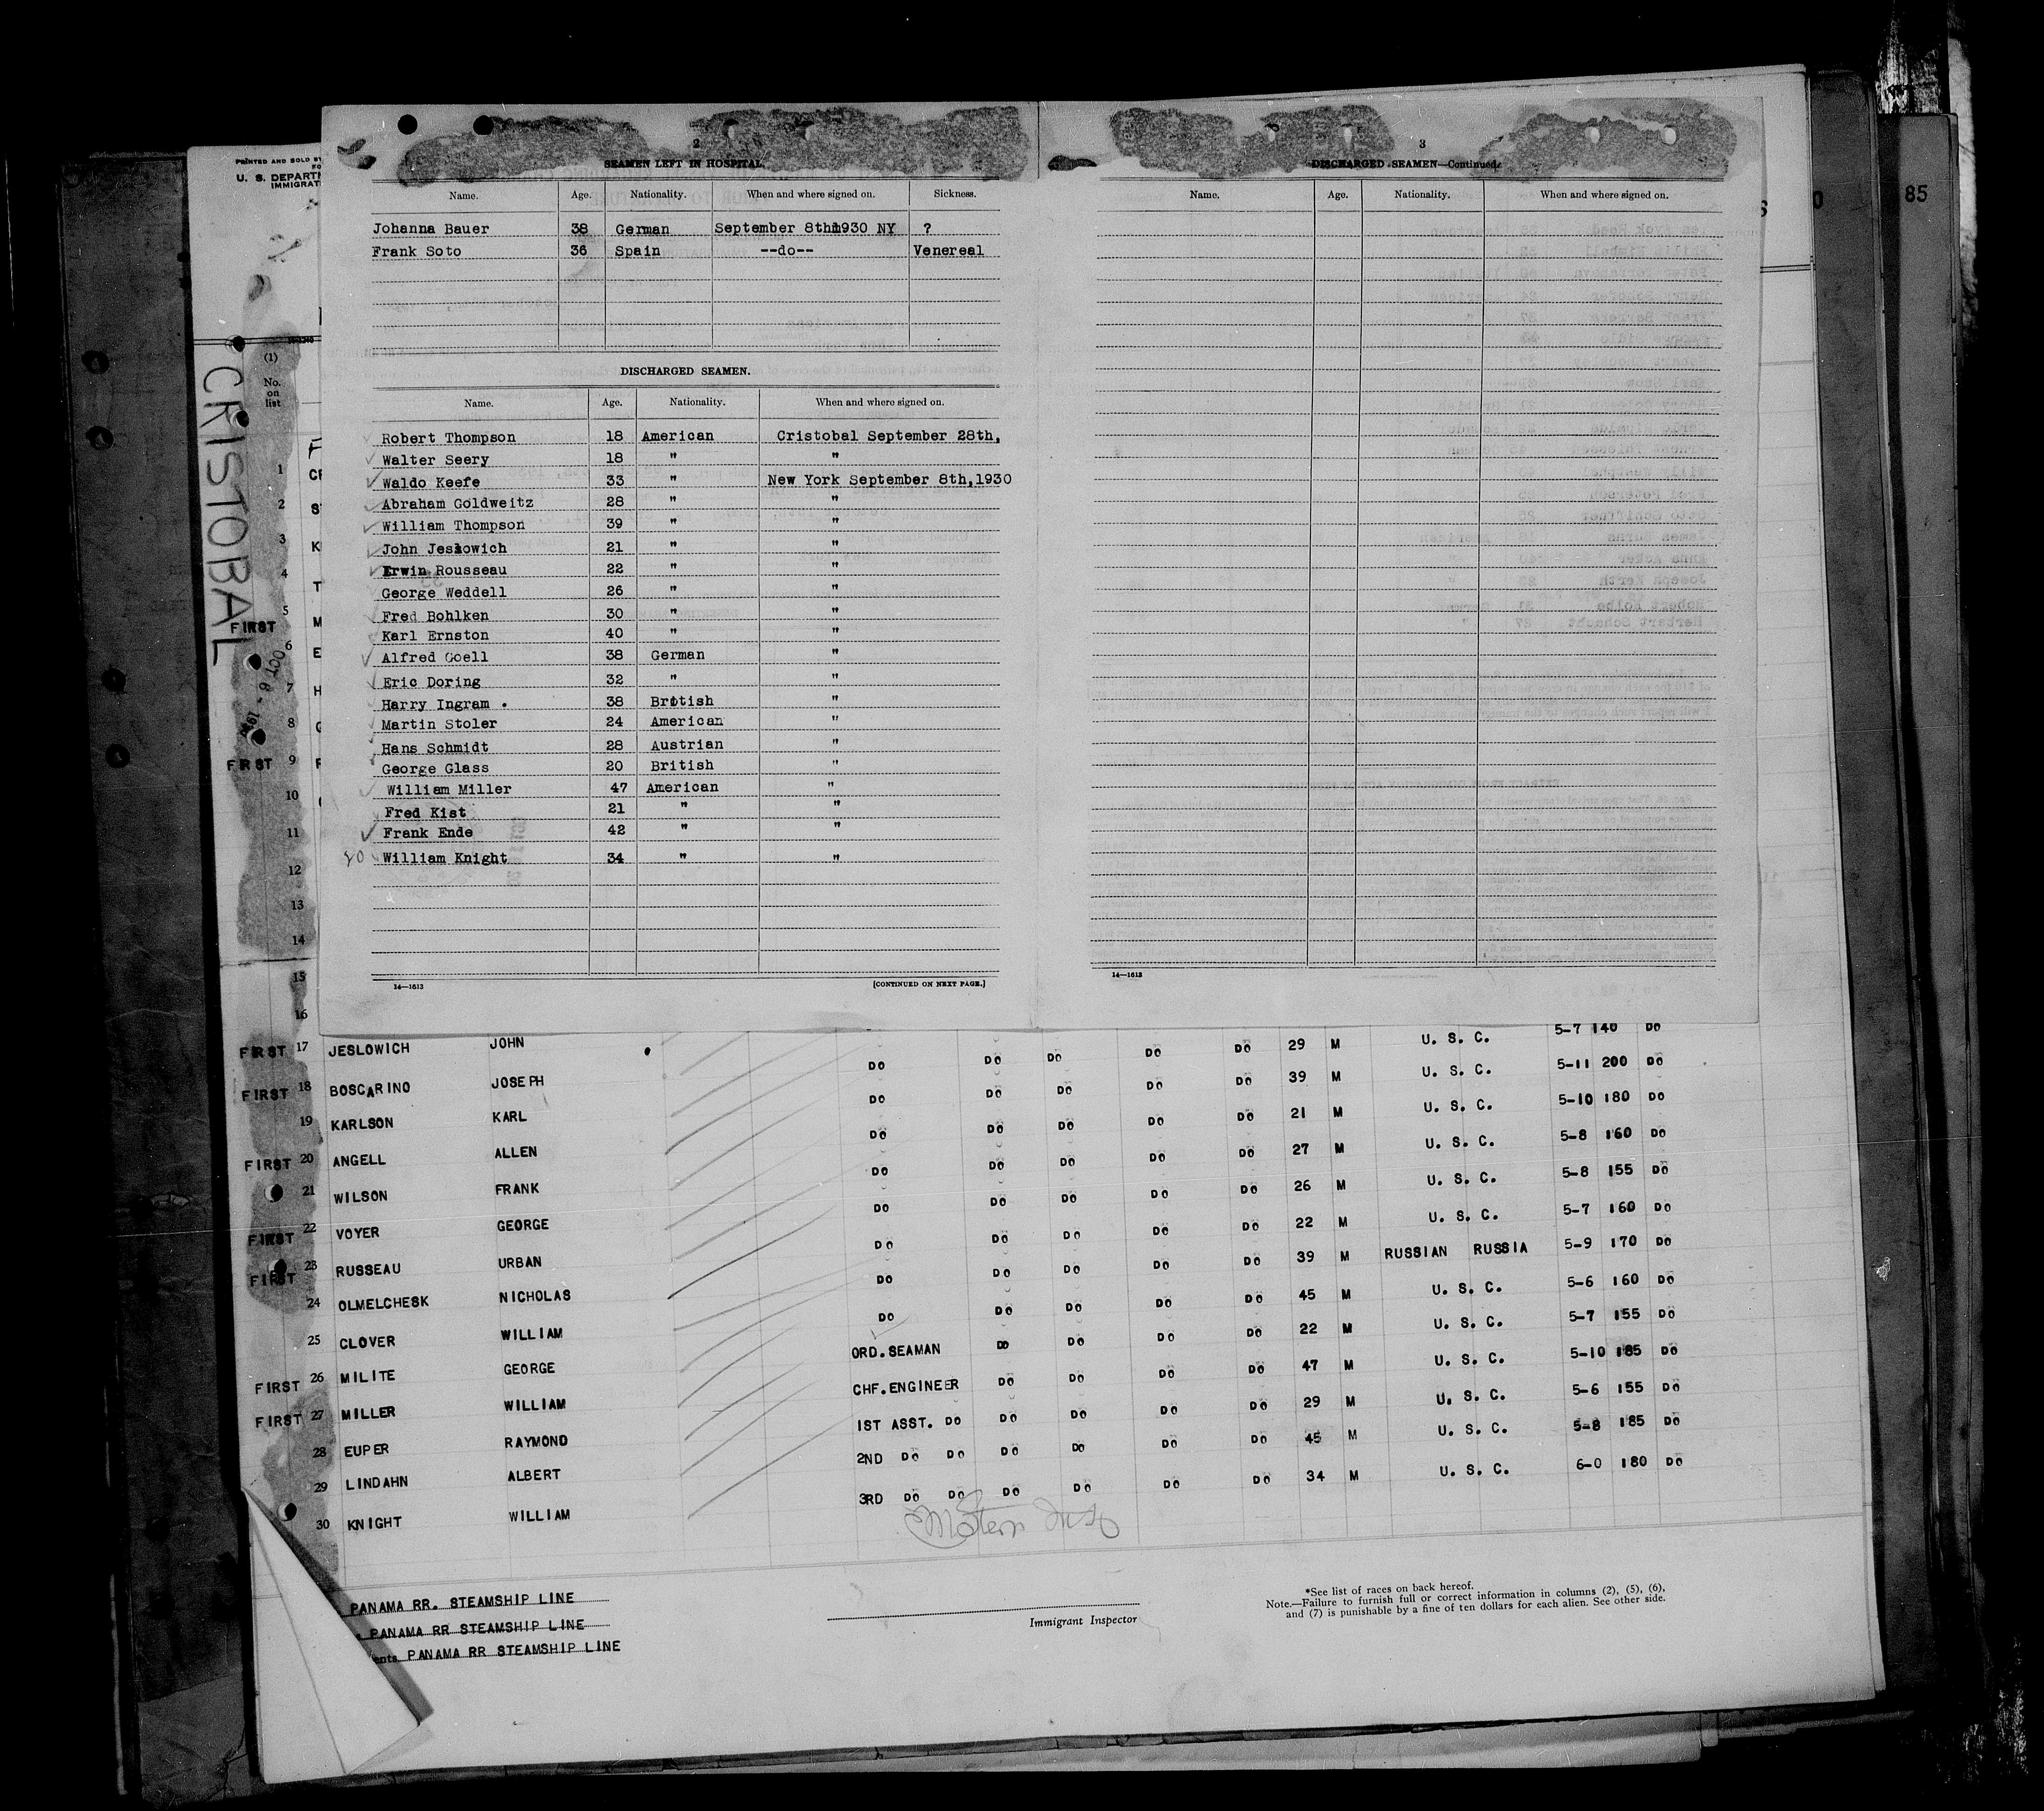 PRINTED AND SOLD BY
U. S. DEPARTM
IMMIGRAT
CRISTOBAL
85
2
SEAMEN LEFT IN HOSPITAL.
Name. Age. Nationality. When and where signed on. Sickness.
Johanna Bauer 38 German September 8th1930 NY ?
Frank Soto 36 Spain --do-- Venereal
DISCHARGED SEAMEN.
Name. Age. Nationality. When and where signed on.
Robert Thompson 18 American Cristobal September 28th,
Walter Seery 18 " "
Waldo Keefe 33 " New York September 8th,1930
Abraham Goldweitz 28 " "
William Thompson 39 " "
John Jeslowich 21 " "
Erwin Rousseau 22 " "
George Weddell 26 " "
Fred Bohlken 30 " "
Karl Ernston 40 " "
Alfred Goell 38 German "
Eric Doring 32 " "
Harry Ingram . 38 British "
Martin Stoler 24 American "
Hans Schmidt 28 Austrian "
George Glass 20 British "
William Miller 47 American "
Fred Kist 21 " "
Frank Ende 42 " "
20 William Knight 34 " "
14—1613 [CONTINUED ON NEXT PAGE.]
3
DISCHARGED SEAMEN—Continued.
Name. Age. Nationality. When and where signed on.
14—1613
(1)
No.
on
list
1
2
3
4
5
FIRST
6
7
8
FIRST 9
10
11
12
13
14
15
16
5-7 140 DO
FIRST 17 JESLOWICH JOHN DO DO DO DO DO 29 M U. S. C. 5-11 200 DO
FIRST 18 BOSCARINO JOSEPH DO DO DO DO DO 39 M U. S. C. 5-10 180 DO
19 KARLSON KARL DO DO DO DO DO 21 M U. S. C. 5-8 160 DO
FIRST 20 ANGELL ALLEN DO DO DO DO DO 27 M U. S. C. 5-8 155 DO
21 WILSON FRANK DO DO DO DO DO 26 M U. S. C. 5-7 160 DO
FIRST 22 VOYER GEORGE DO DO DO DO DO 22 M U. S. C. 5-9 170 DO
FIRST 23 RUSSEAU URBAN DO DO DO DO DO 39 M RUSSIAN RUSSIA 5-6 160 DO
24 OLMELCHESK NICHOLAS DO DO DO DO DO 45 M U. S. C. 5-7 155 DO
25 CLOVER WILLIAM ORD.SEAMAN DO DO DO DO 22 M U. S. C. 5-10 185 DO
FIRST 26 MILITE GEORGE CHF.ENGINEER DO DO DO DO 47 M U. S. C. 5-6 155 DO
FIRST 27 MILLER WILLIAM 1ST ASST. DO DO DO DO DO 29 M U. S. C. 5-8 185 DO
28 EUPER RAYMOND 2ND DO DO DO DO DO DO 45 M U. S. C. 6-0 180 DO
29 LINDAHN ALBERT 3RD DO DO DO DO DO DO 34 M U. S. C.
30 KNIGHT WILLIAM
PANAMA RR. STEAMSHIP LINE
PANAMA RR STEAMSHIP LINE
ents PANAMA RR STEAMSHIP LINE
Immigrant Inspector
*See list of races on back hereof.
Note.—Failure to furnish full or correct information in columns (2), (5), (6),
and (7) is punishable by a fine of ten dollars for each alien. See other side.